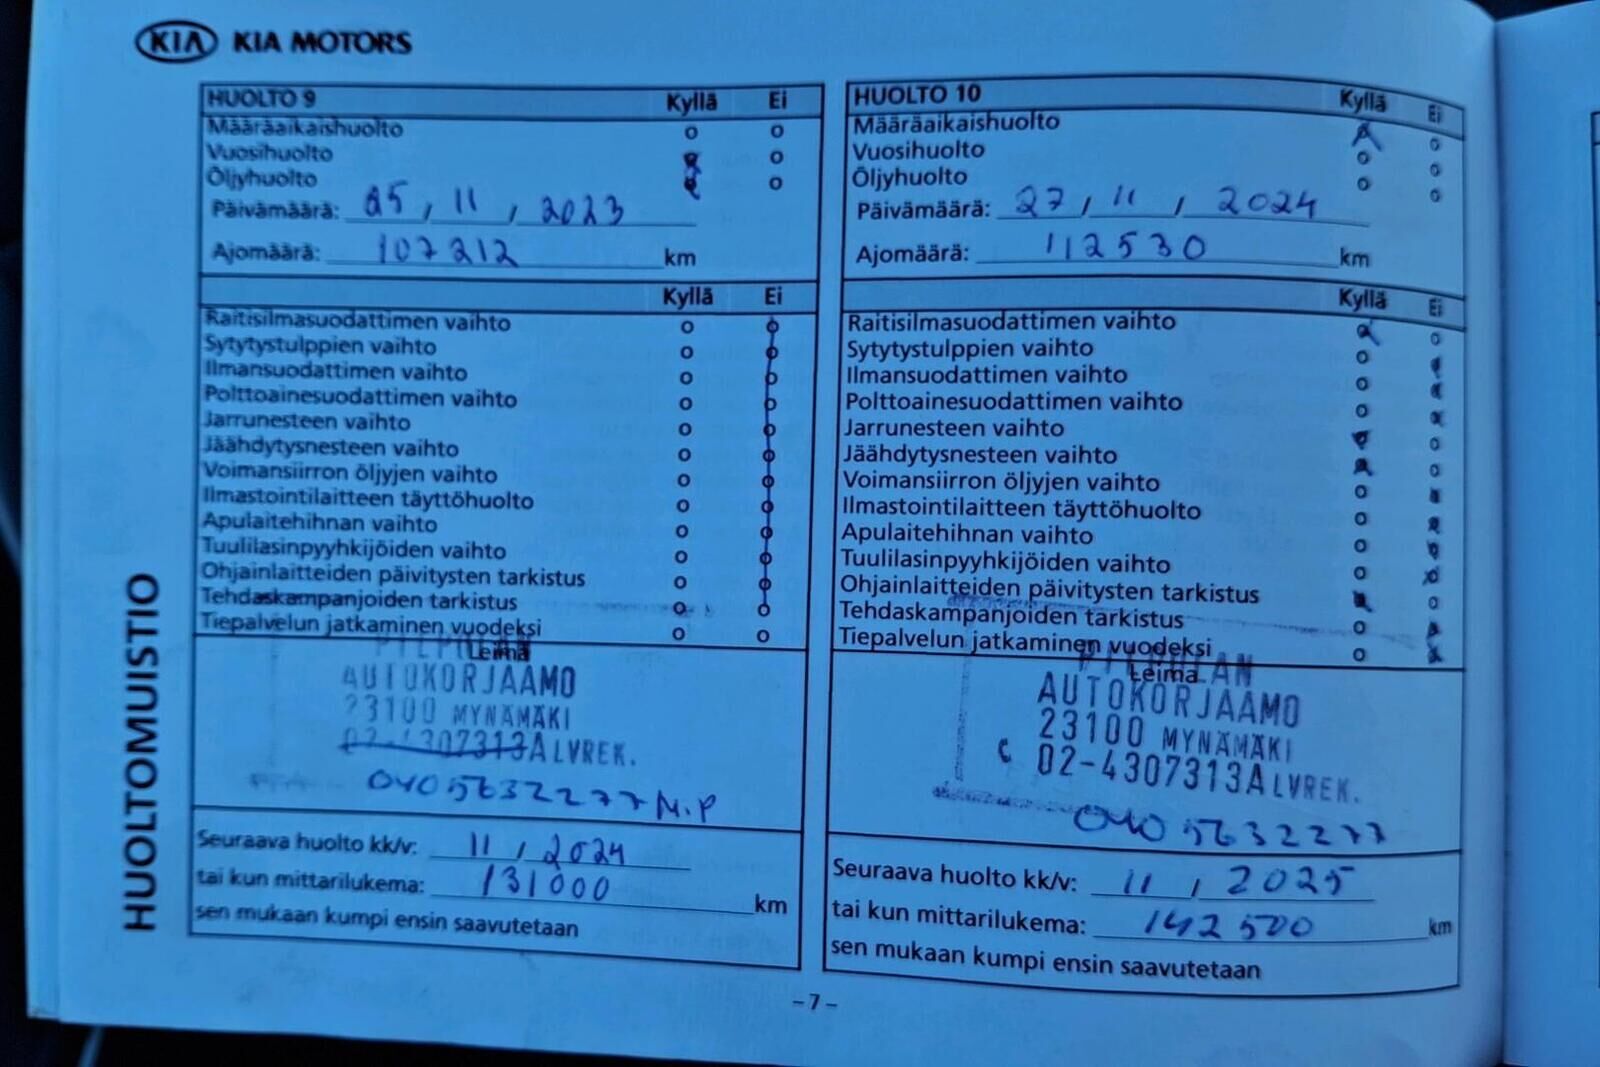 KIA KIA MOTORS
HUOLTO 9 Kyllä Ei
Määräaikaishuolto
Vuosihuolto
Öljyhuolto
Päivämäärä: 25 / 11 / 2023
Ajomäärä: 107212 km
Kyllä Ei
Raitisilmasuodattimen vaihto
Sytytystulppien vaihto
Ilmansuodattimen vaihto
Polttoainesuodattimen vaihto
Jarrunesteen vaihto
Jäähdytysnesteen vaihto
Voimansiirron öljyjen vaihto
Ilmastointilaitteen täyttöhuolto
Apulaitehihnan vaihto
Tuulilasinpyyhkijöiden vaihto
Ohjainlaitteiden päivitysten tarkistus
Tehdaskampanjoiden tarkistus
Tiepalvelun jatkaminen vuodeksi
Leima
AUTOKORJAAMO
23100 MYNÄMÄKI
02-4307313 ALVREK.
040 5632277 M.P
Seuraava huolto kk/v: 11 / 2024
tai kun mittarilukema: 131000 km
sen mukaan kumpi ensin saavutetaan
HUOLTO 10 Kyllä Ei
Määräaikaishuolto
Vuosihuolto
Öljyhuolto
Päivämäärä: 27 / 11 / 2024
Ajomäärä: 112530 km
Kyllä Ei
Raitisilmasuodattimen vaihto
Sytytystulppien vaihto
Ilmansuodattimen vaihto
Polttoainesuodattimen vaihto
Jarrunesteen vaihto
Jäähdytysnesteen vaihto
Voimansiirron öljyjen vaihto
Ilmastointilaitteen täyttöhuolto
Apulaitehihnan vaihto
Tuulilasinpyyhkijöiden vaihto
Ohjainlaitteiden päivitysten tarkistus
Tehdaskampanjoiden tarkistus
Tiepalvelun jatkaminen vuodeksi
Leima
AUTOKORJAAMO
23100 MYNÄMÄKI
02-4307313 ALVREK.
040 5632277
Seuraava huolto kk/v: 11 / 2025
tai kun mittarilukema: 142500 km
sen mukaan kumpi ensin saavutetaan
HUOLTOMUISTIO
-7-